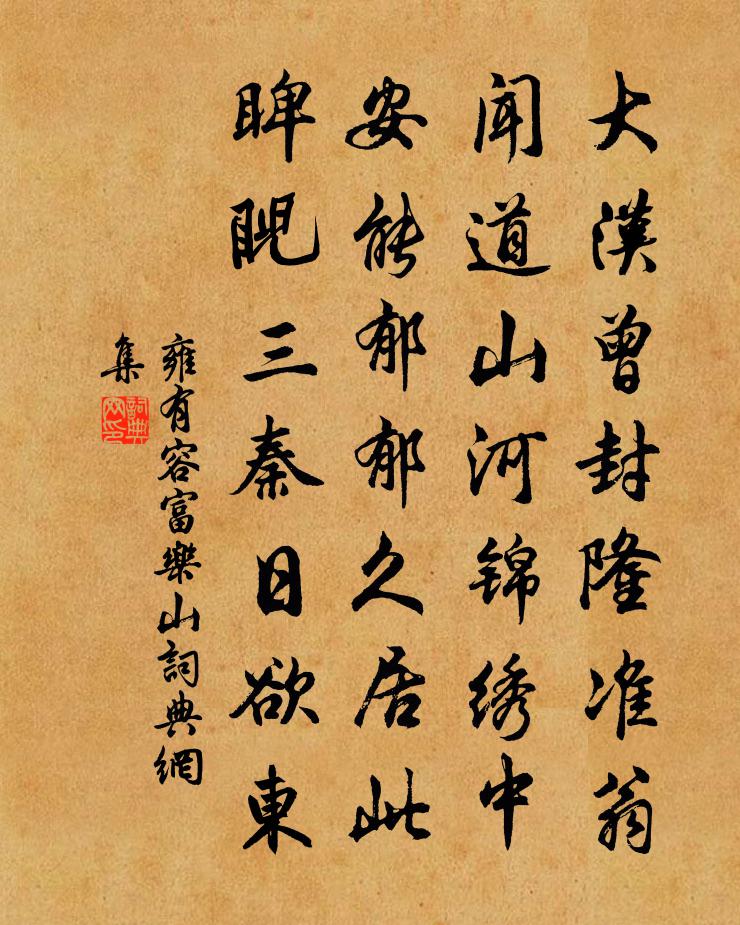 大漢曾封隆准翁
闻道山河锦绣中
安能郁郁久居此
睥睨三秦日欲東
雍有容富樂山詞典網
集
詞典
网印